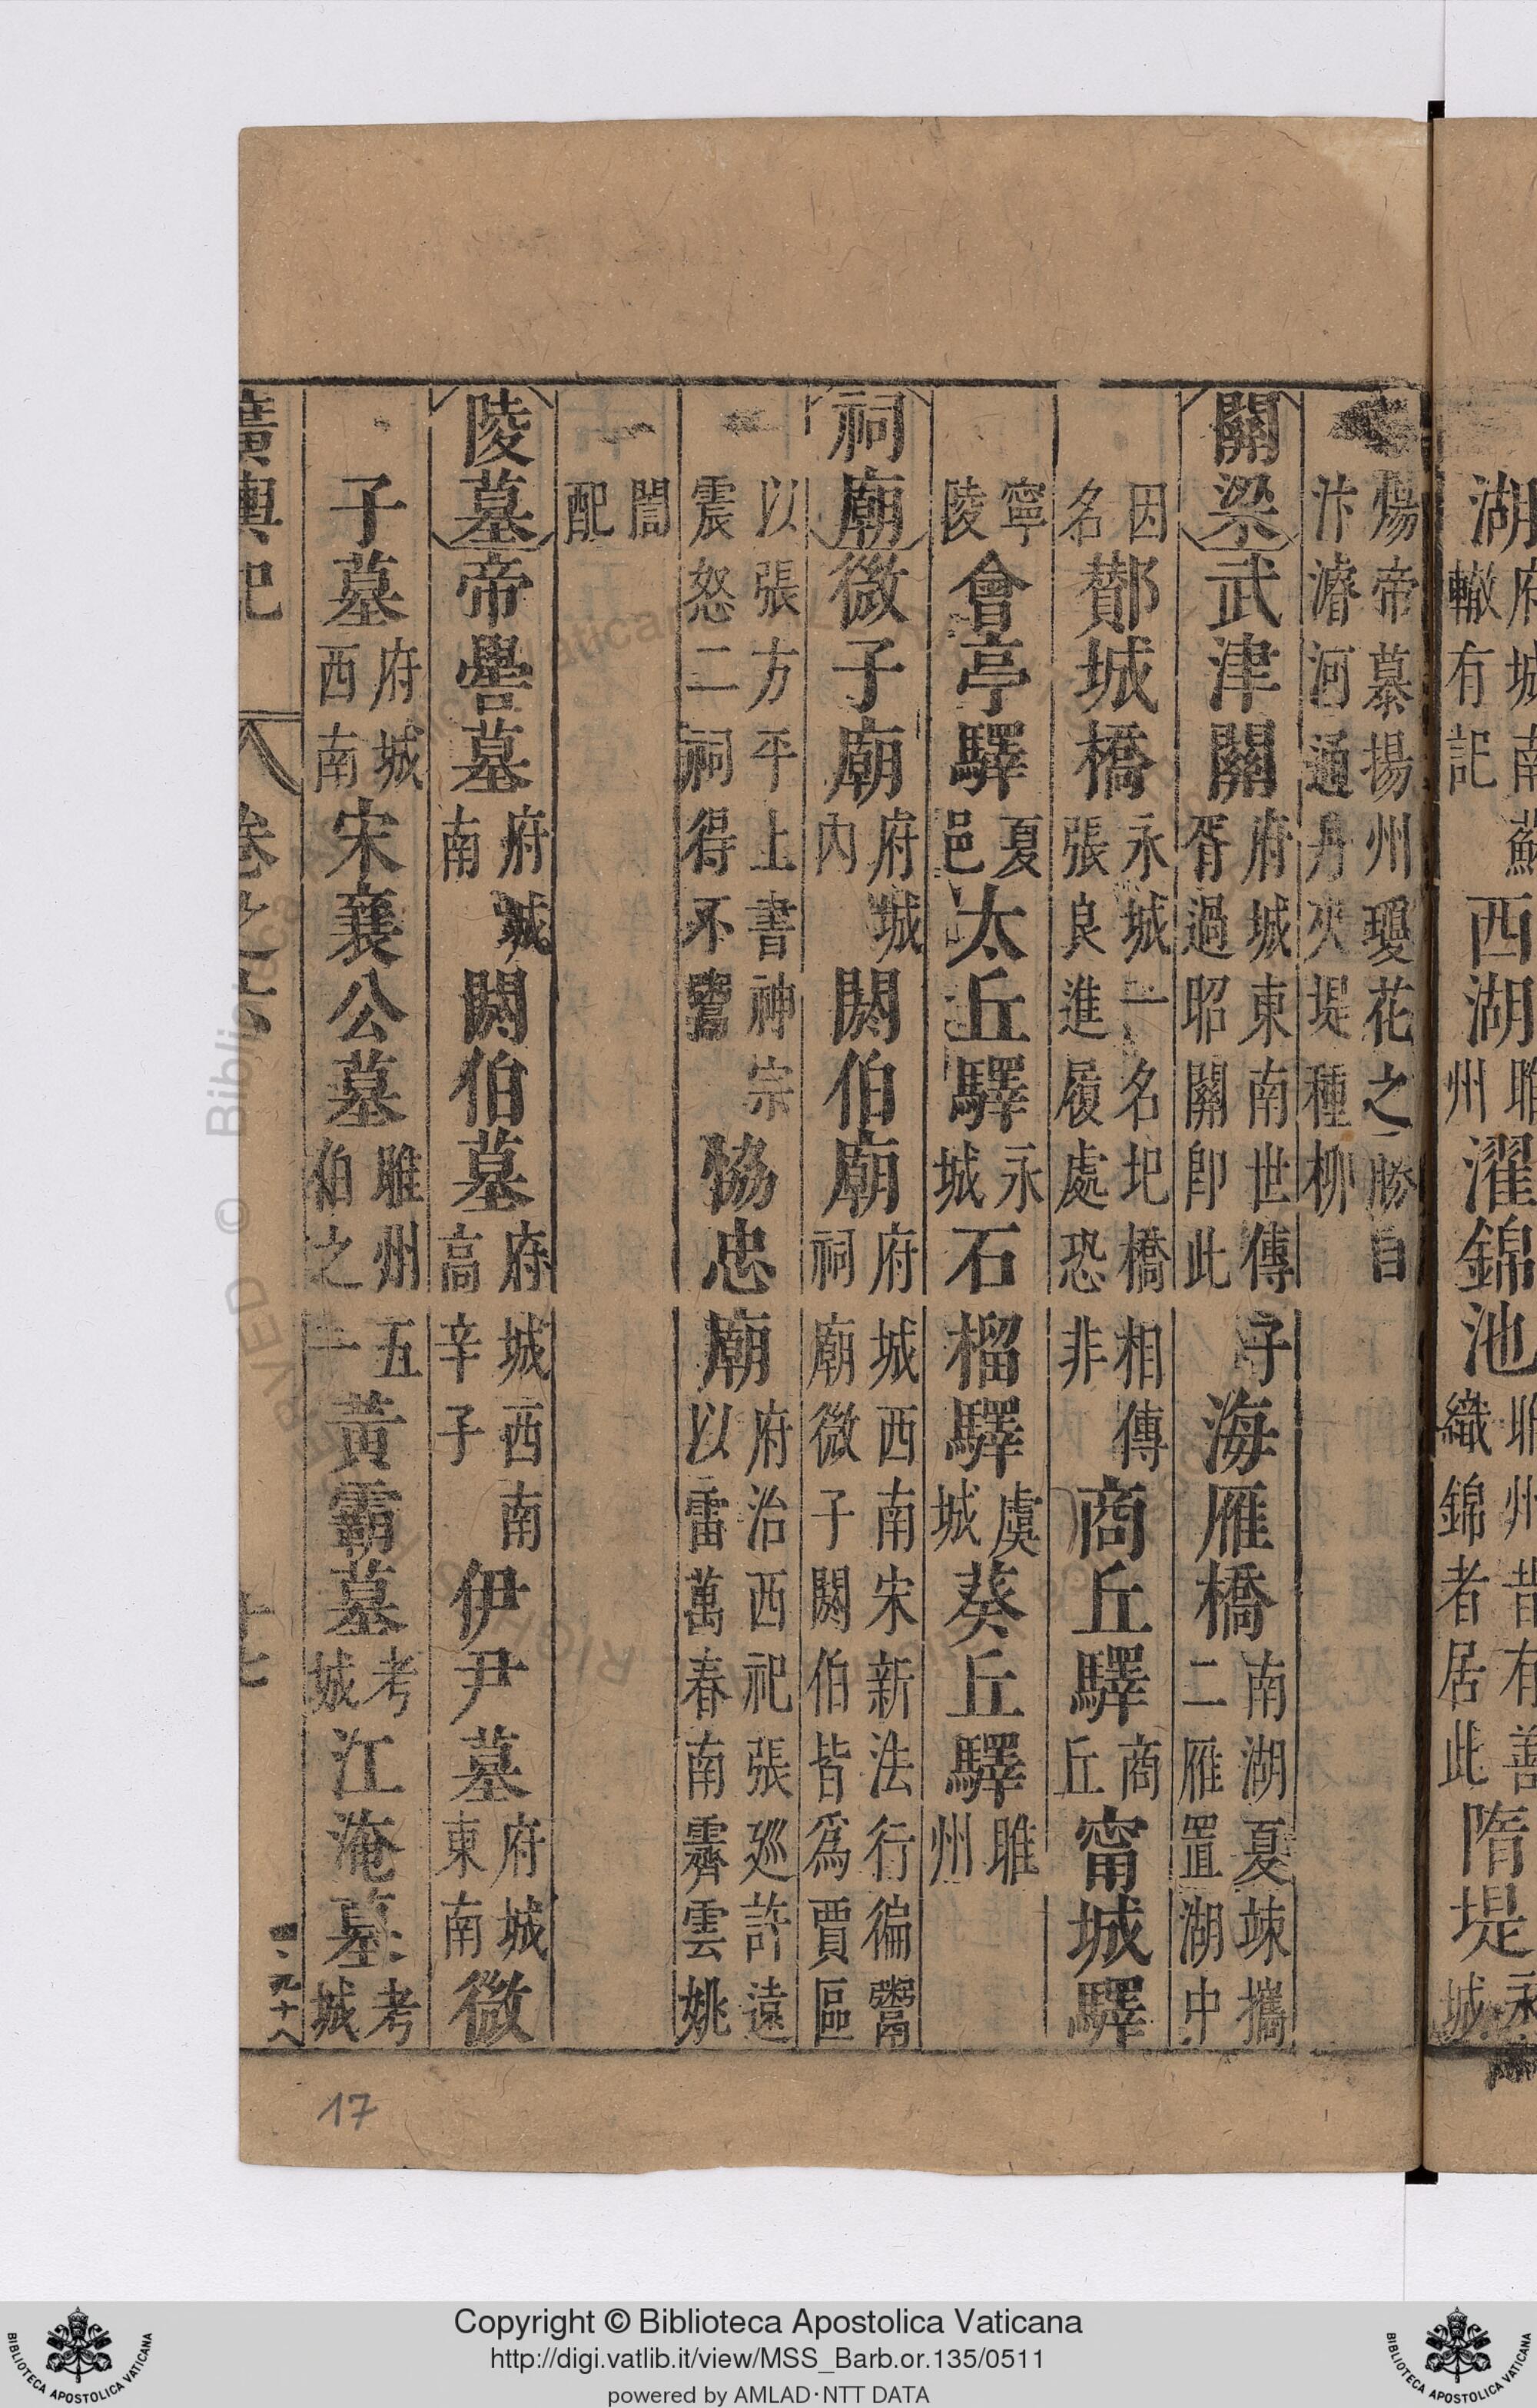 湖府城南蘇轍有記西湖睢州濯錦池睢州昔有善織錦者居此隋堤永城
煬帝慕揚州瓊花之勝自汴濬河通丹夾堤種柳
關梁武津關府城東南世傳子胥過昭關卽此海雁橋南湖夏竦攜二雁置湖中
因名酇城橋永城一名圯橋相傳張良進履處恐非商丘驛商丘甯城驛
寧陵會亭驛夏邑太丘驛永城石榴驛虞城葵丘驛睢州
祠廟微子廟府城內閼伯廟府城西南宋新法行徧鬻祠廟微子閼伯皆爲賈區
以張方平上書神宗震怒二祠得不鬻協忠廟府治西祀張廵許遠以雷萬春南霽雲姚
誾配
陵墓帝嚳墓府城南閼伯墓府城西南高辛子伊尹墓府城東南微
子墓府城西南宋襄公墓睢州五伯之一黃霸墓考城江淹墓考城
廣輿記 卷之六 十七
17
Copyright © Biblioteca Apostolica Vaticana
http://digi.vatlib.it/view/MSS_Barb.or.135/0511
powered by AMLAD·NTT DATA
BIBLIOTECA APOSTOLICA VATICANA
BIBLIOTECA APOSTOLICA VATICANA